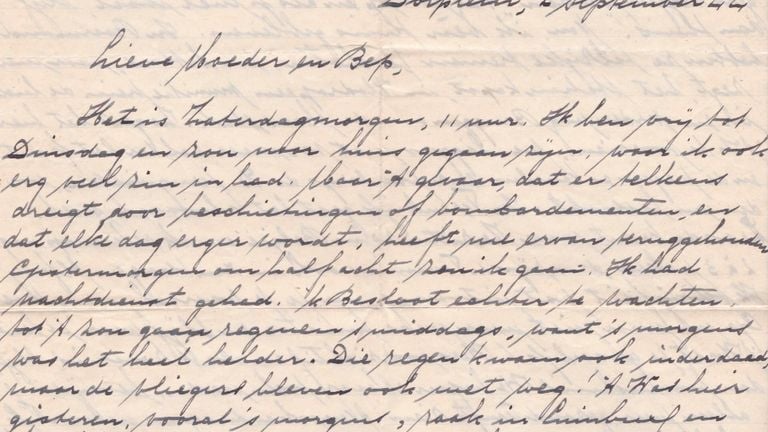 2 September 44
Lieve Moeder en Bep,
Het is Zaterdagmorgen, 11 uur. Ik ben vrij tot
Dinsdag en zou naar huis gegaan zijn, waar ik ook
erg veel zin in had. Maar 't gevaar, dat er telkens
dreigt door beschietingen of bombardementen, en
dat elke dag erger wordt, heeft me ervan teruggehouden
Gistermorgen om half acht zou ik gaan. Ik had
nachtdienst gehad. 'k Besloot echter te wachten,
tot 't zou gaan regenen 's middags, want 's morgens
was het heel helder. Die regen kwam ook inderdaad,
maar de vliegers bleven ook niet weg! 't Was hier
gisteren, vooral 's morgens, raak in en